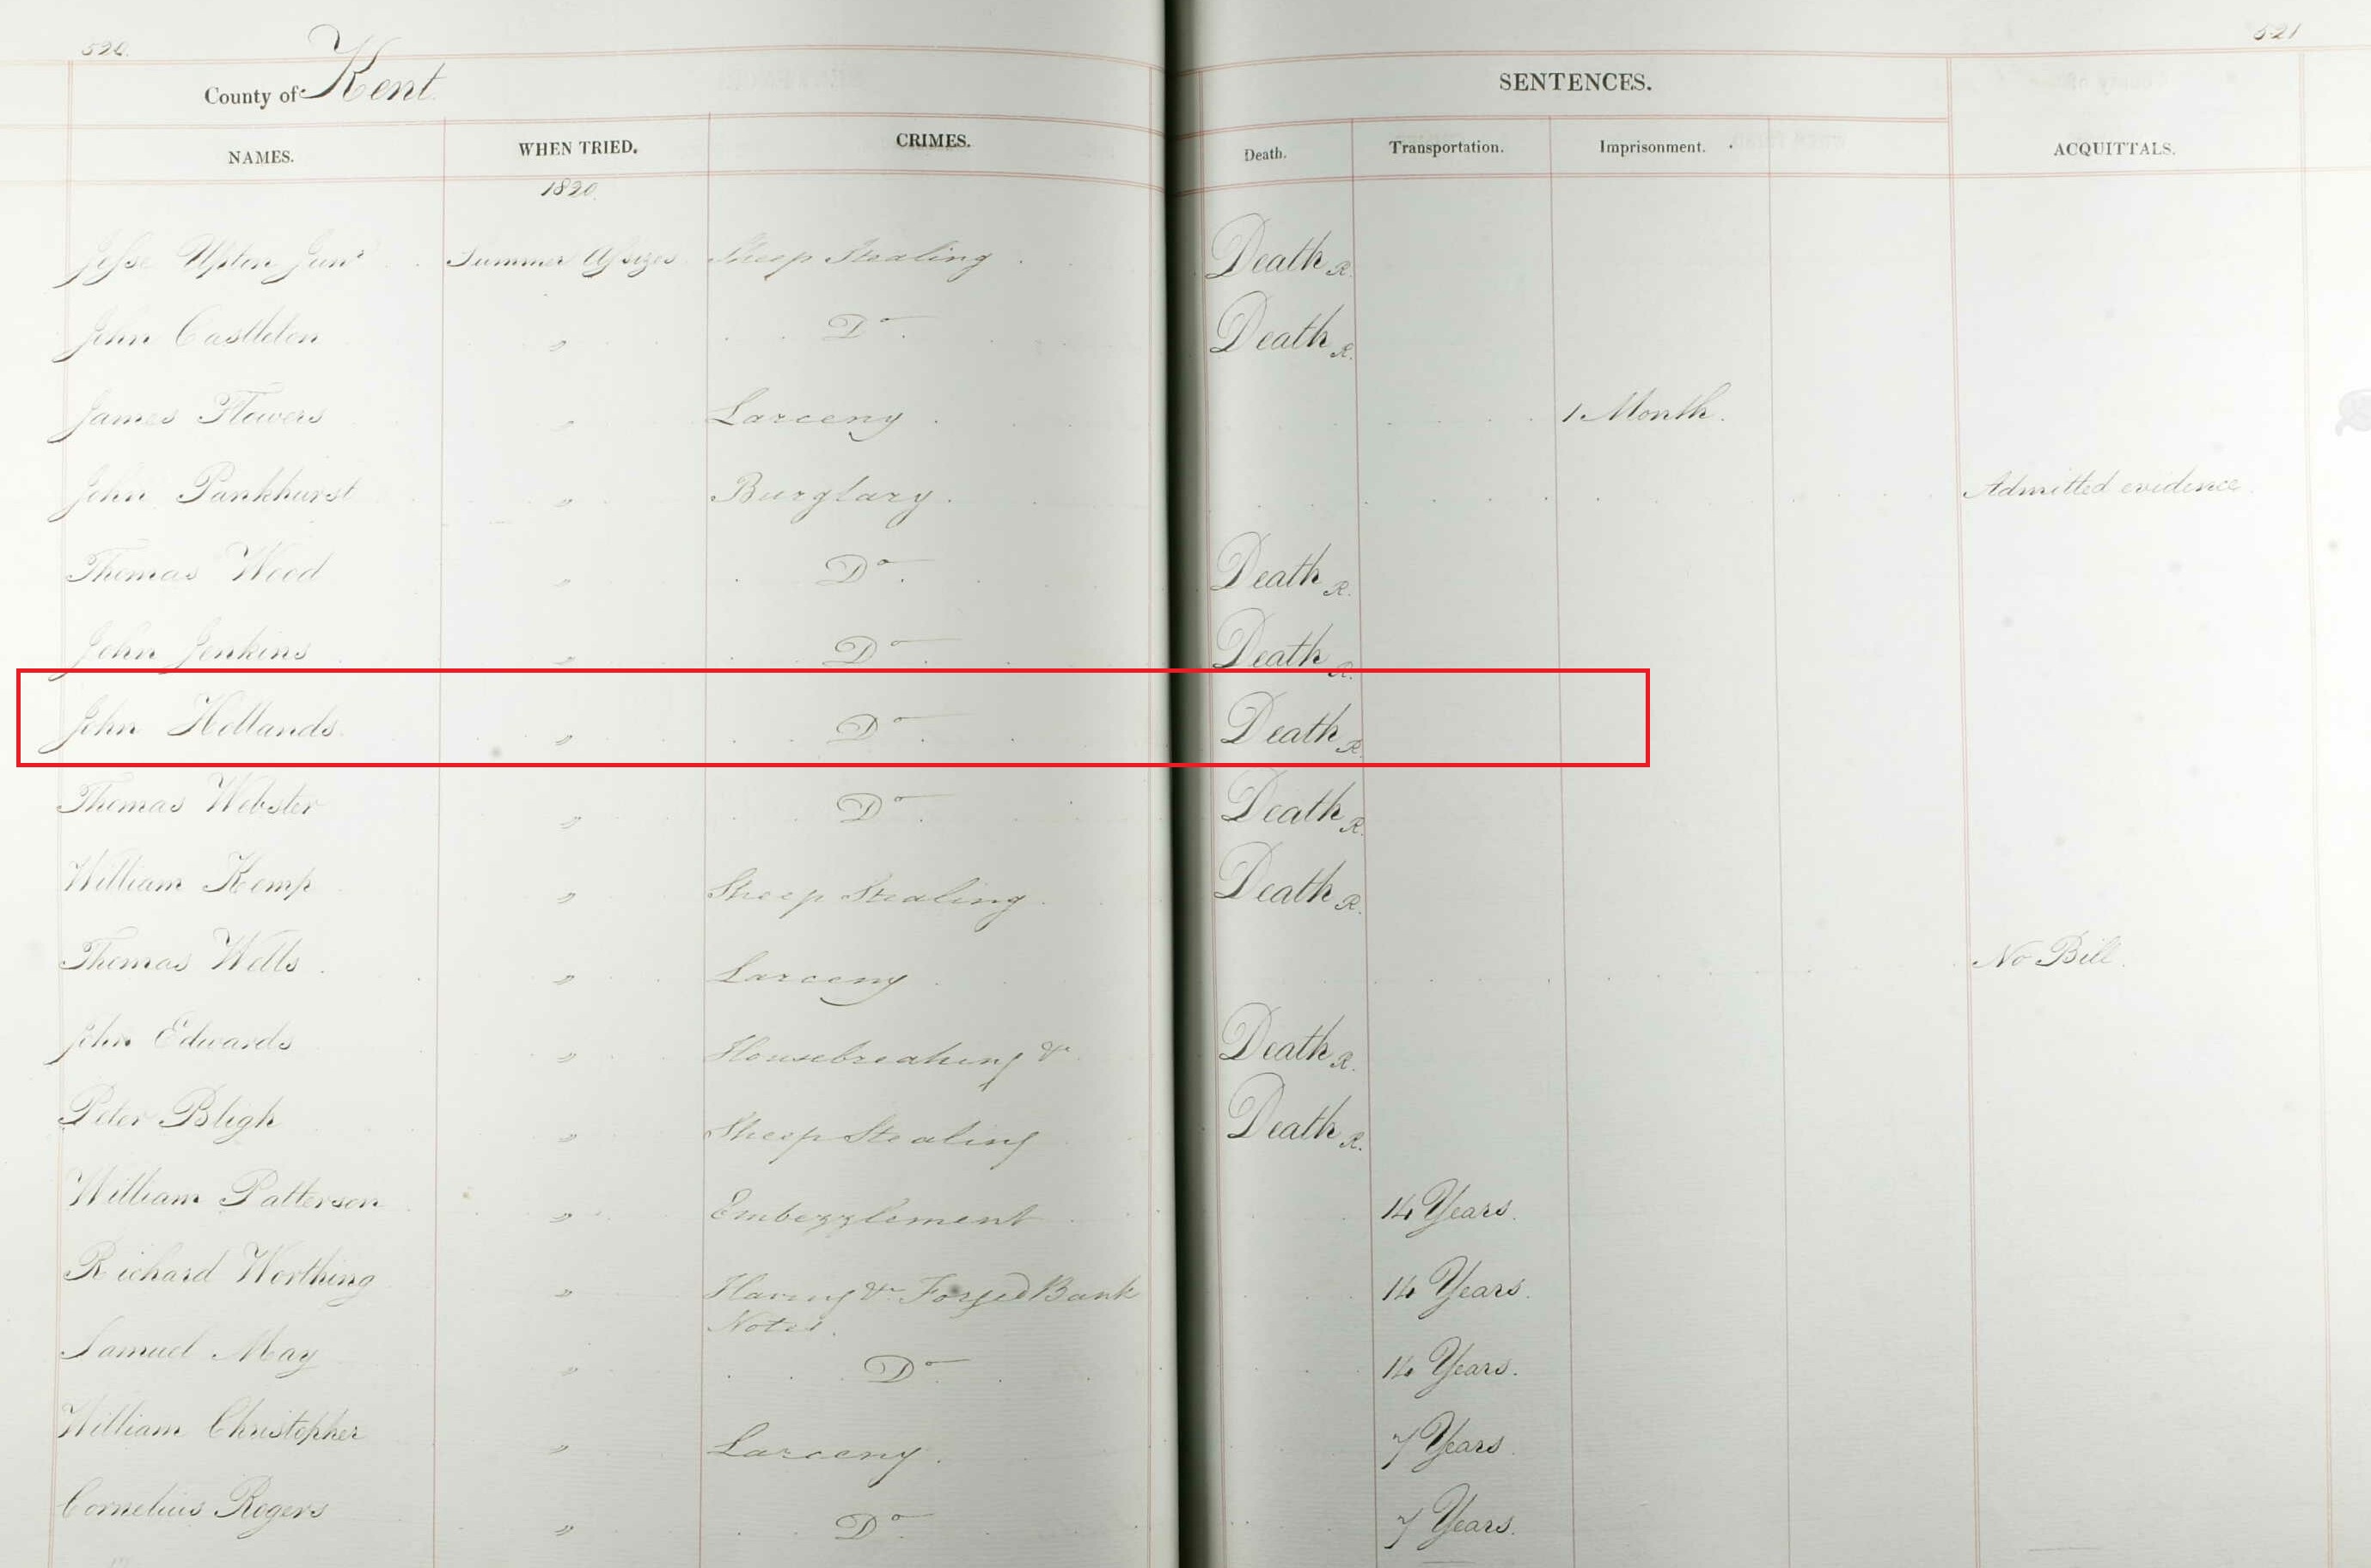 520. 521
County of Kent.
SENTENCES.
NAMES. WHEN TRIED. CRIMES. Death. Transportation. Imprisonment. ACQUITTALS.
1820.
Jesse Upton Junr Summer Assizes Sheep Stealing Death R.
John Castleton " Do Death R.
James Flowers " Larceny 1 Month.
John Pankhurst " Burglary Admitted evidence.
Thomas Wood " Do Death R.
John Jenkins " Do Death R.
John Hollands " Do Death R.
Thomas Webster " Do Death R.
William Kemp " Sheep Stealing Death R.
Thomas Wells " Larceny No Bill.
John Edwards " Housebreaking &c Death R.
Peter Bligh " Sheep Stealing Death R.
William Patterson " Embezzlement 14 Years.
Richard Worthing " Having &c Forged Bank 14 Years.
Notes.
Samuel May " Do 14 Years.
William Christopher " Larceny. 7 Years.
Cornelius Rogers " Do 7 Years.